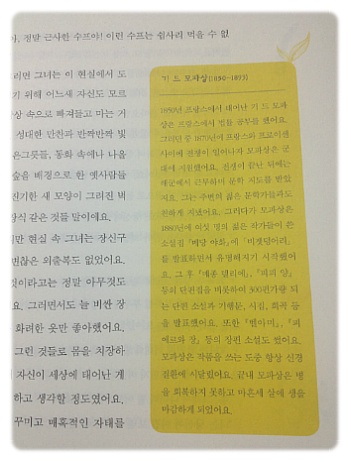 , 정말 근사한 수프야! 이런 수프는 쉽사리 먹을 수 없
리면 그녀는 이 현실에서 도
기 위해 어느새 자신도 모르
상 속으로 빠져들고 마는 거
성대한 만찬과 반짝반짝 빛
은그릇들, 동화 속에나 나올
숲을 배경으로 한 옛사람들
진기한 새 모양이 그려진 벼
장식 같은 것들 말이에요.
지만 현실 속 그녀는 장신구
변변찮은 외출복도 없었어요.
것이라고는 정말 아무것도
요. 그러면서도 늘 비싼 장
화려한 옷만 좋아했어요.
그런 것들로 몸을 치장하
자신이 세상에 태어난 게
하고 생각할 정도였어요.
꾸미고 매혹적인 자태를
기 드 모파상(1850~1893)
1850년 프랑스에서 태어난 기 드 모파
상은 프랑스에서 법률 공부를 했어요.
그러던 중 1870년에 프랑스와 프로이센
사이에 전쟁이 일어나자 모파상은 군
대에 지원했어요. 전쟁이 끝난 뒤에는
해군에서 근무하며 문학 지도를 받았
지요. 그는 주변의 젊은 문학가들과도
친하게 지냈어요. 그러다가 모파상은
1880년에 여섯 명의 젊은 작가들이 쓴
소설집 『메당 야화』에 「비곗덩어리」
를 발표하면서 유명해지기 시작했어
요. 그 후 「메종 텔리에」, 「피피 양」
등의 단편집을 비롯하여 300편가량 되
는 단편 소설과 기행문, 시집, 희곡 등
을 발표했어요. 또한 『벨아미』, 『피
에르와 장』 등의 장편 소설도 썼어요.
모파상은 작품을 쓰는 도중 항상 신경
질환에 시달렸어요. 끝내 모파상은 병
을 회복하지 못하고 마흔세 살에 생을
마감하게 되었어요.